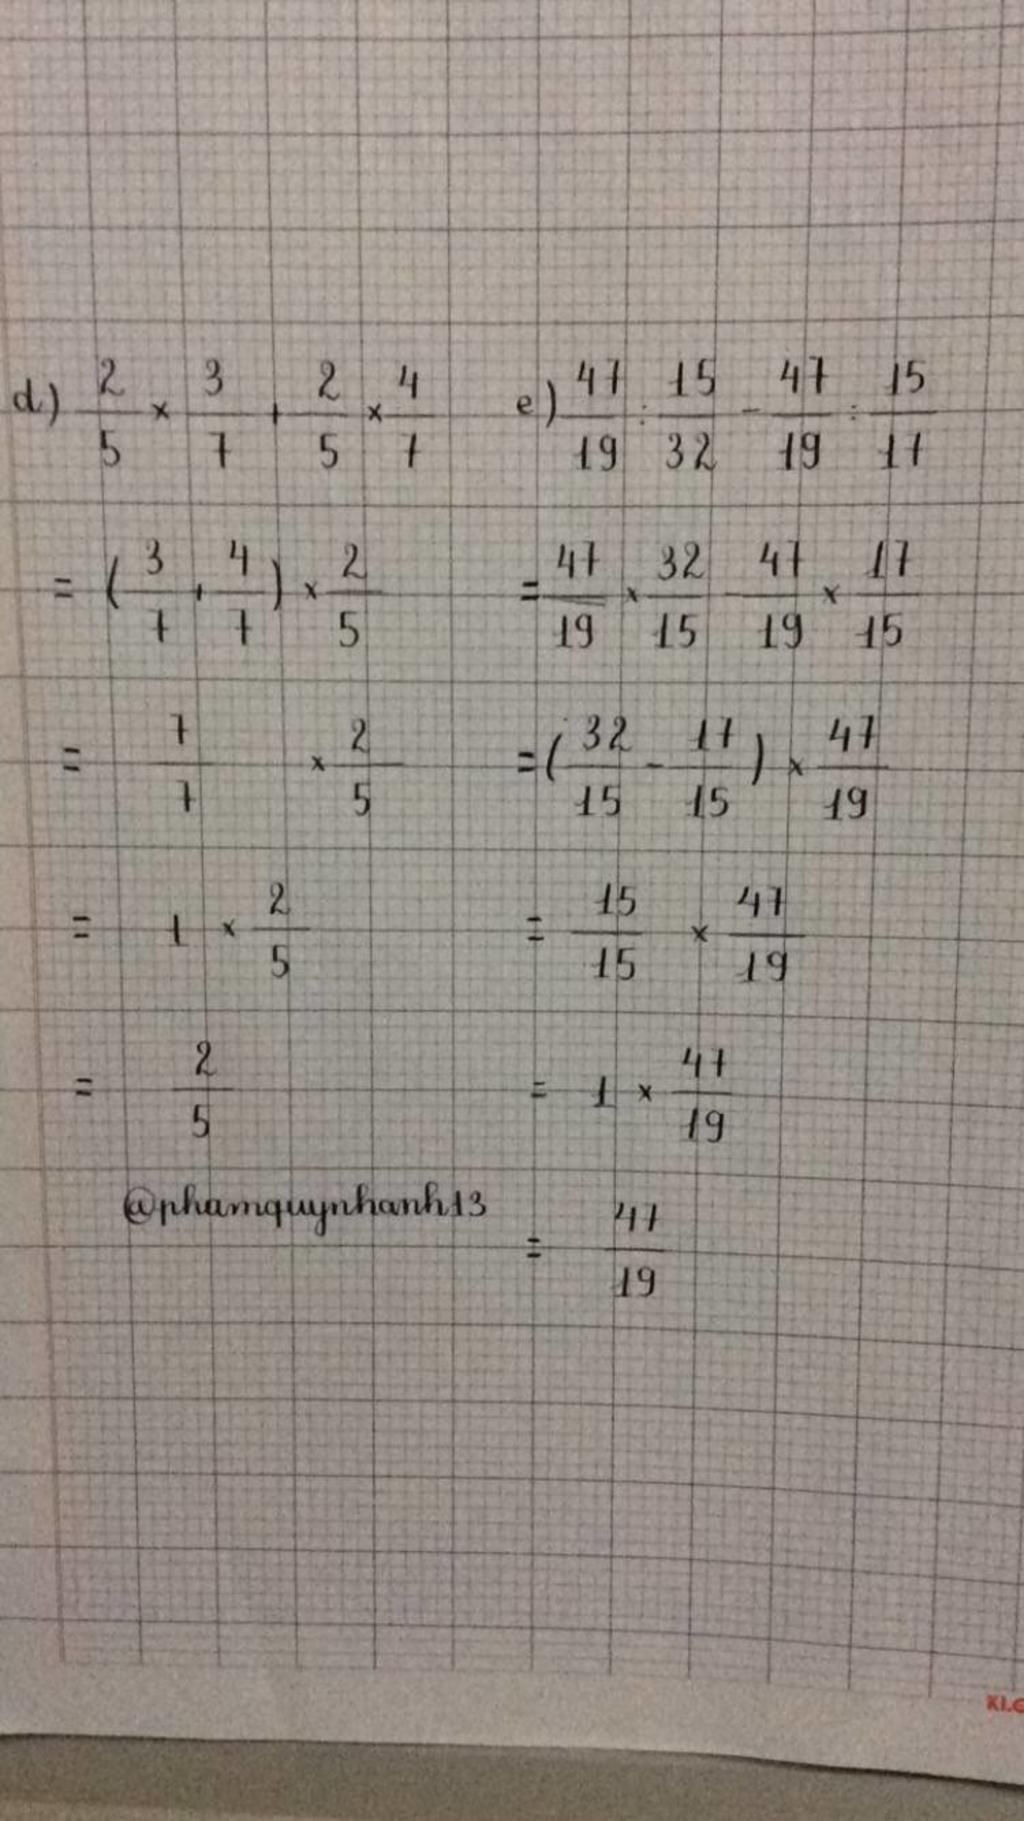 d) 2/5 × 3/7 + 2/5 × 4/7
= (3/7 + 4/7) × 2/5
= 7/7 × 2/5
= 1 × 2/5
= 2/5
@phamquynhanh13
e) 47/19 : 15/32 - 47/19 : 15/17
= 47/19 × 32/15 - 47/19 × 17/15
= (32/15 - 17/15) × 47/19
= 15/15 × 47/19
= 1 × 47/19
= 47/19